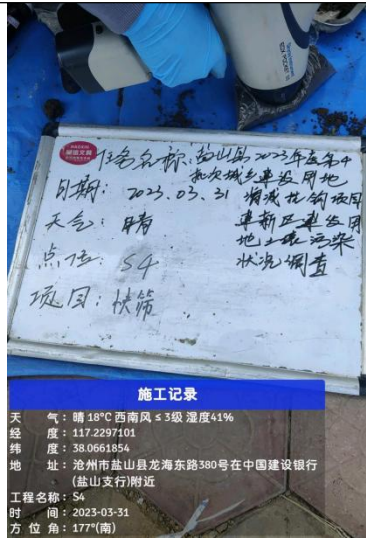 任务名称:盐山县2023年度第4
批次城乡建设用地
日期:2023.03.31 增减挂钩项目
建新区建设用
天气:晴 地土壤污染
点位:S4 状况调查
项目:快筛
施工记录
天 气:晴 18℃ 西南风 ≤ 3级 湿度41%
经 度:117.2297101
纬 度:38.0661854
地 址:沧州市盐山县龙海东路380号在中国建设银行
(盐山支行)附近
工程名称:S4
时 间:2023-03-31
方 位 角:177°(南)